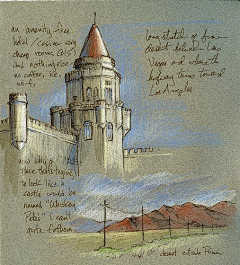 an amenity-free
hotel/casino very
cheap rooms (20's)
and nothing else
no coffee, ice,
wi-fi,
long stretch of fine
desert between Las
Vegas and where the
highway turns toward
Los Angeles
now why a
place that's trying
to look like a
castle would be
named "Whiskey
Pete's" I can't
quite fathom
desert outside Primm